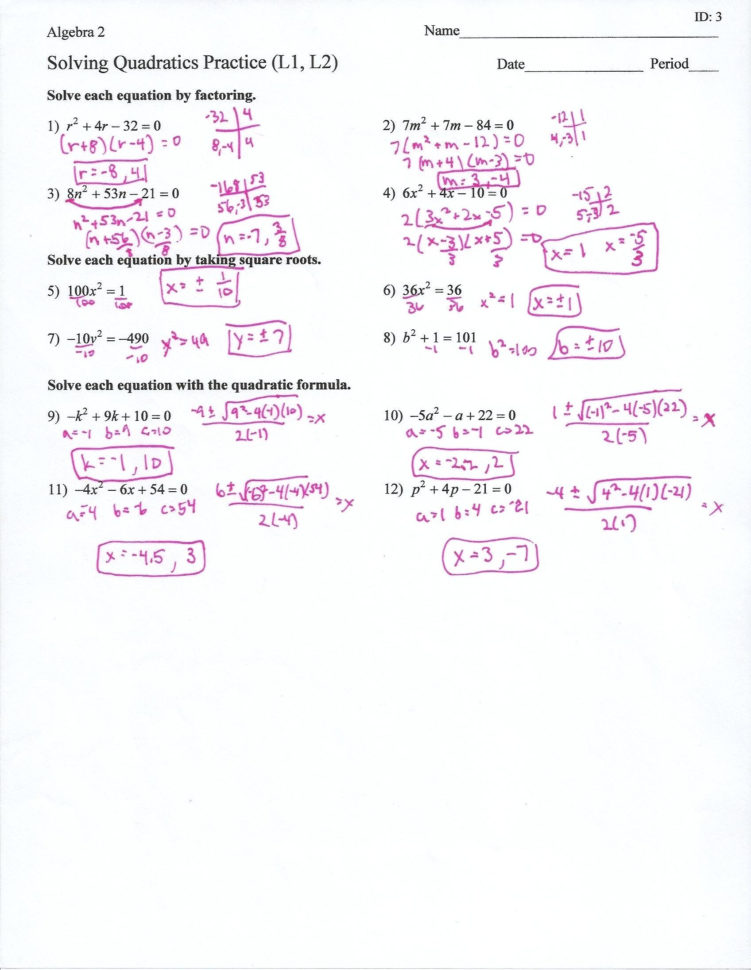 ID: 3
Algebra 2
Name
Solving Quadratics Practice (L1, L2)
Date Period
Solve each equation by factoring.
1) r² + 4r − 32 = 0
-32 | 4
8,-4 | 4
(r+8)(r-4) = 0
r = -8, 4
2) 7m² + 7m − 84 = 0
-12 | 1
4,-3 | 1
7(m² + m - 12) = 0
7(m+4)(m-3) = 0
m = 3, -4
3) 8n² + 53n − 21 = 0
-168 | 53
56,-3 | 53
n² + 53n - 21 = 0
(n + 56/8)(n - 3/8) = 0
n = -7, 3/8
4) 6x² + 4x − 10 = 0
-15 | 2
5,-3 | 2
2(3x² + 2x - 5) = 0
2(x - 3/3)(x + 5/3) = 0
x = 1 x = -5/3
Solve each equation by taking square roots.
5) 100x² = 1
100 100
x = ± 1/10
6) 36x² = 36
36 36
x² = 1
x = ±1
7) −10v² = −490
-10 -10
y² = 49
y = ±7
8) b² + 1 = 101
-1 -1
b² = 100
b = ±10
Solve each equation with the quadratic formula.
9) −k² + 9k + 10 = 0
a = -1 b = 9 c = 10
-9 ± √9² - 4(-1)(10) = x
2(-1)
k = -1, 10
10) −5a² − a + 22 = 0
a = -5 b = -1 c = 22
1 ± √(-1)² - 4(-5)(22) = x
2(-5)
x = -2.2, 2
11) −4x² − 6x + 54 = 0
a = -4 b = -6 c = 54
6 ± √(-6)² - 4(-4)(54) = x
2(-4)
x = -4.5, 3
12) p² + 4p − 21 = 0
a = 1 b = 4 c = -21
-4 ± √4² - 4(1)(-21) = x
2(1)
x = 3, -7